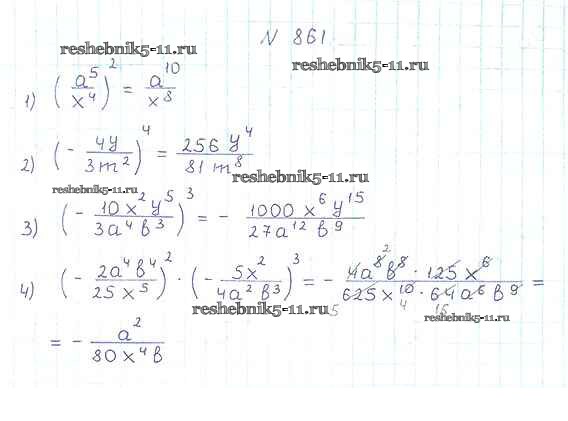 N 861
reshebnik5-11.ru
reshebnik5-11.ru
1) (a⁵/x⁴)² = a¹⁰/x⁸
2) (- 4y/3m²)⁴ = 256 y⁴/81 m⁸
reshebnik5-11.ru
reshebnik5-11.ru
3) (- 10x²y⁵/3a⁴b³)³ = - 1000 x⁶ y¹⁵/27a¹² b⁹
4) (- 2a⁴b⁴/25x⁵)² · (- 5x²/4a²b³)³ = - 4a⁸b⁸ · 125 x⁶/625x¹⁰ · 64a⁶b⁹ =
2
5 4 16
reshebnik5-11.ru
reshebnik5-11.ru
= - a²/80x⁴b